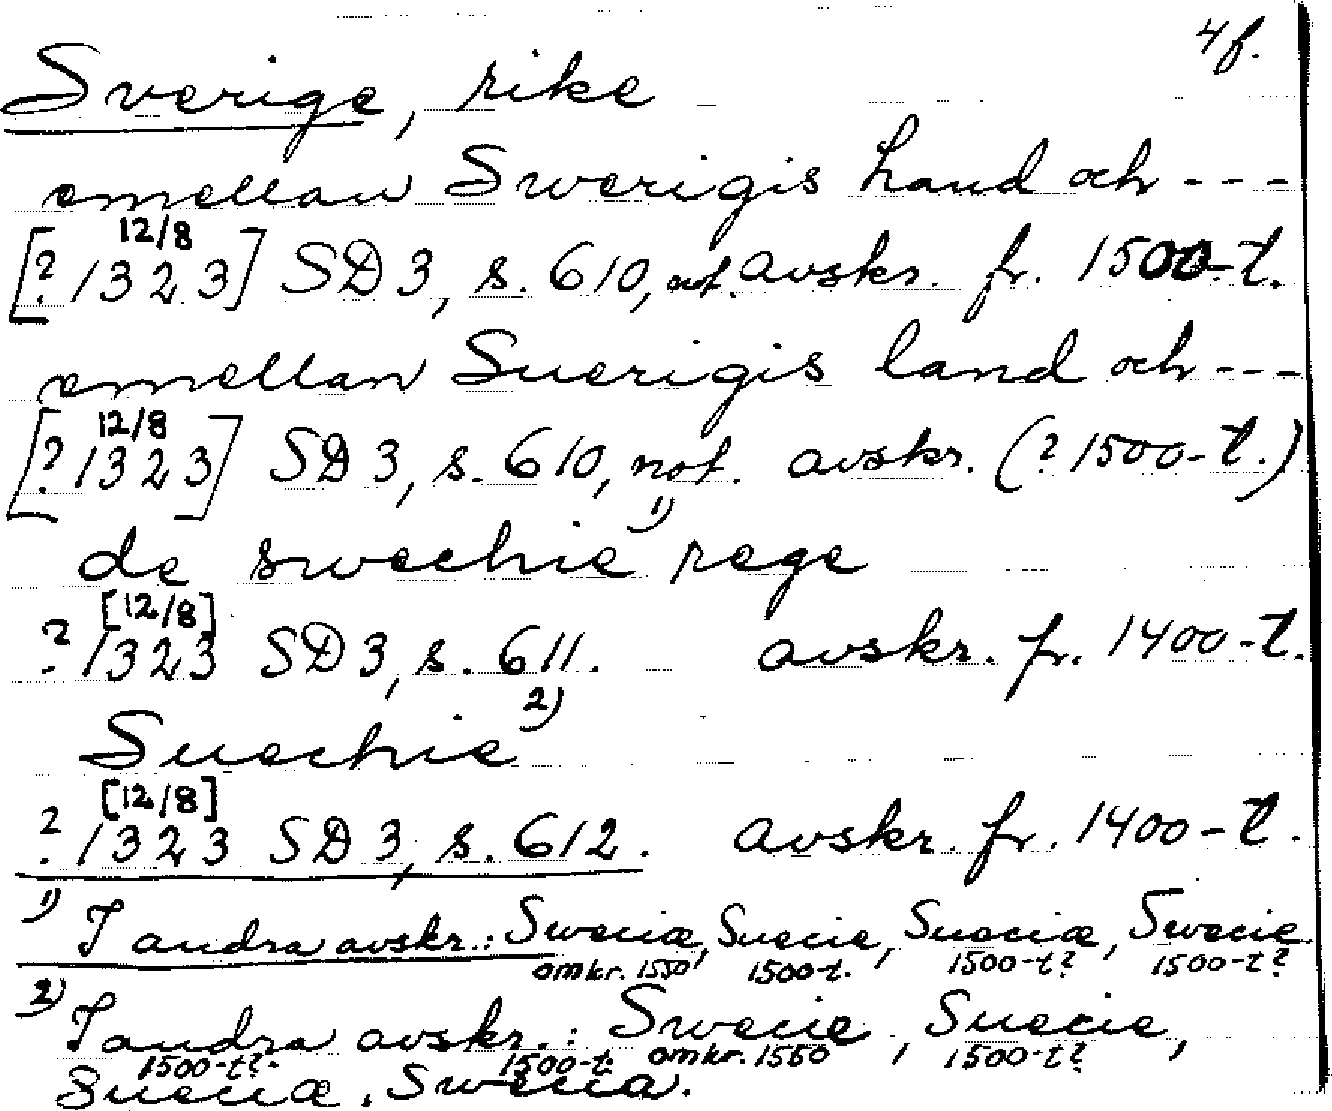 4f.
Sverige, rike
emellan Swerigis Land och ---
12/8
[? 1323] SD 3, s. 610, not. avskr. fr. 1500-t.
emellan Suerigis land och ---
12/8
[? 1323] SD 3, s. 610, not. avskr. (? 1500-t.)
de swechie 1) rege
[12/8]
? 1323 SD 3, s. 611. avskr. fr. 1400-t.
Suechie 2)
[12/8]
? 1323 SD 3, s. 612. avskr. fr. 1400-t.
1) I andra avskr.: Sweciæ, Suecie, Sueciæ, Swecie.
omkr. 1550 1500-t. 1500-t? 1500-t?
2) I andra avskr.: Swecie, Suecie,
omkr. 1550 1500-t?
Sueciæ, Swecia.
1500-t?. 1500-t.